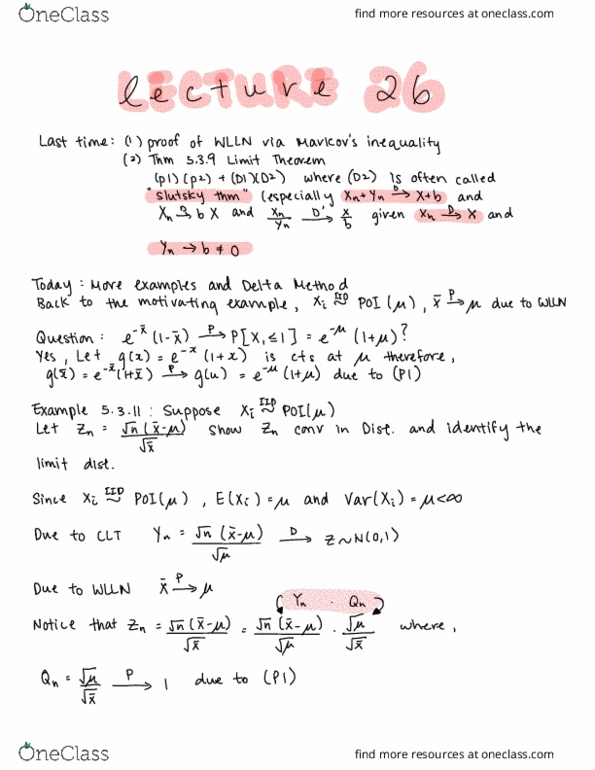 OneClass
find more resources at oneclass.com
lecture 26
Last time: (1) proof of WLLN via Markov's inequality
(2) Thm 5.3.9 Limit Theorem
(P1)(P2) + (D1)(D2) where (D2) is often called
"Slutsky thm" (especially Xn+Yn →D X+b and
Xn →D bX and Xn/Yn →D X/b given Xn →D X and
Yn → b ≠ 0
Today: More examples and Delta Method
Back to the motivating example, Xi ~IID POI(μ), x̄ →P μ due to WLLN
Question: e^-x̄ (1-x̄) →P P[X1 ≤ 1] = e^-μ (1+μ)?
Yes, Let g(x) = e^-x (1+x) is cts at μ therefore,
g(x̄) = e^-x̄(1+x̄) →P g(u) = e^-μ (1+μ) due to (P1)
Example 5.3.11: Suppose Xi ~IID POI(μ)
Let Zn = √n (x̄-μ)/√x̄ show Zn conv in Dist. and identify the
limit dist.
Since Xi ~IID POI(μ), E(Xi) = μ and Var(Xi) = μ<∞
Due to CLT Yn = √n (x̄-μ)/√μ →D Z~N(0,1)
Due to WLLN x̄ →P μ
Yn · Qn
Notice that Zn = √n (x̄-μ)/√x̄ = √n (x̄-μ)/√μ · √μ/√x̄ where,
Qn = √μ/√x̄ →P 1 due to (P1)
OneClass
find more resources at oneclass.com